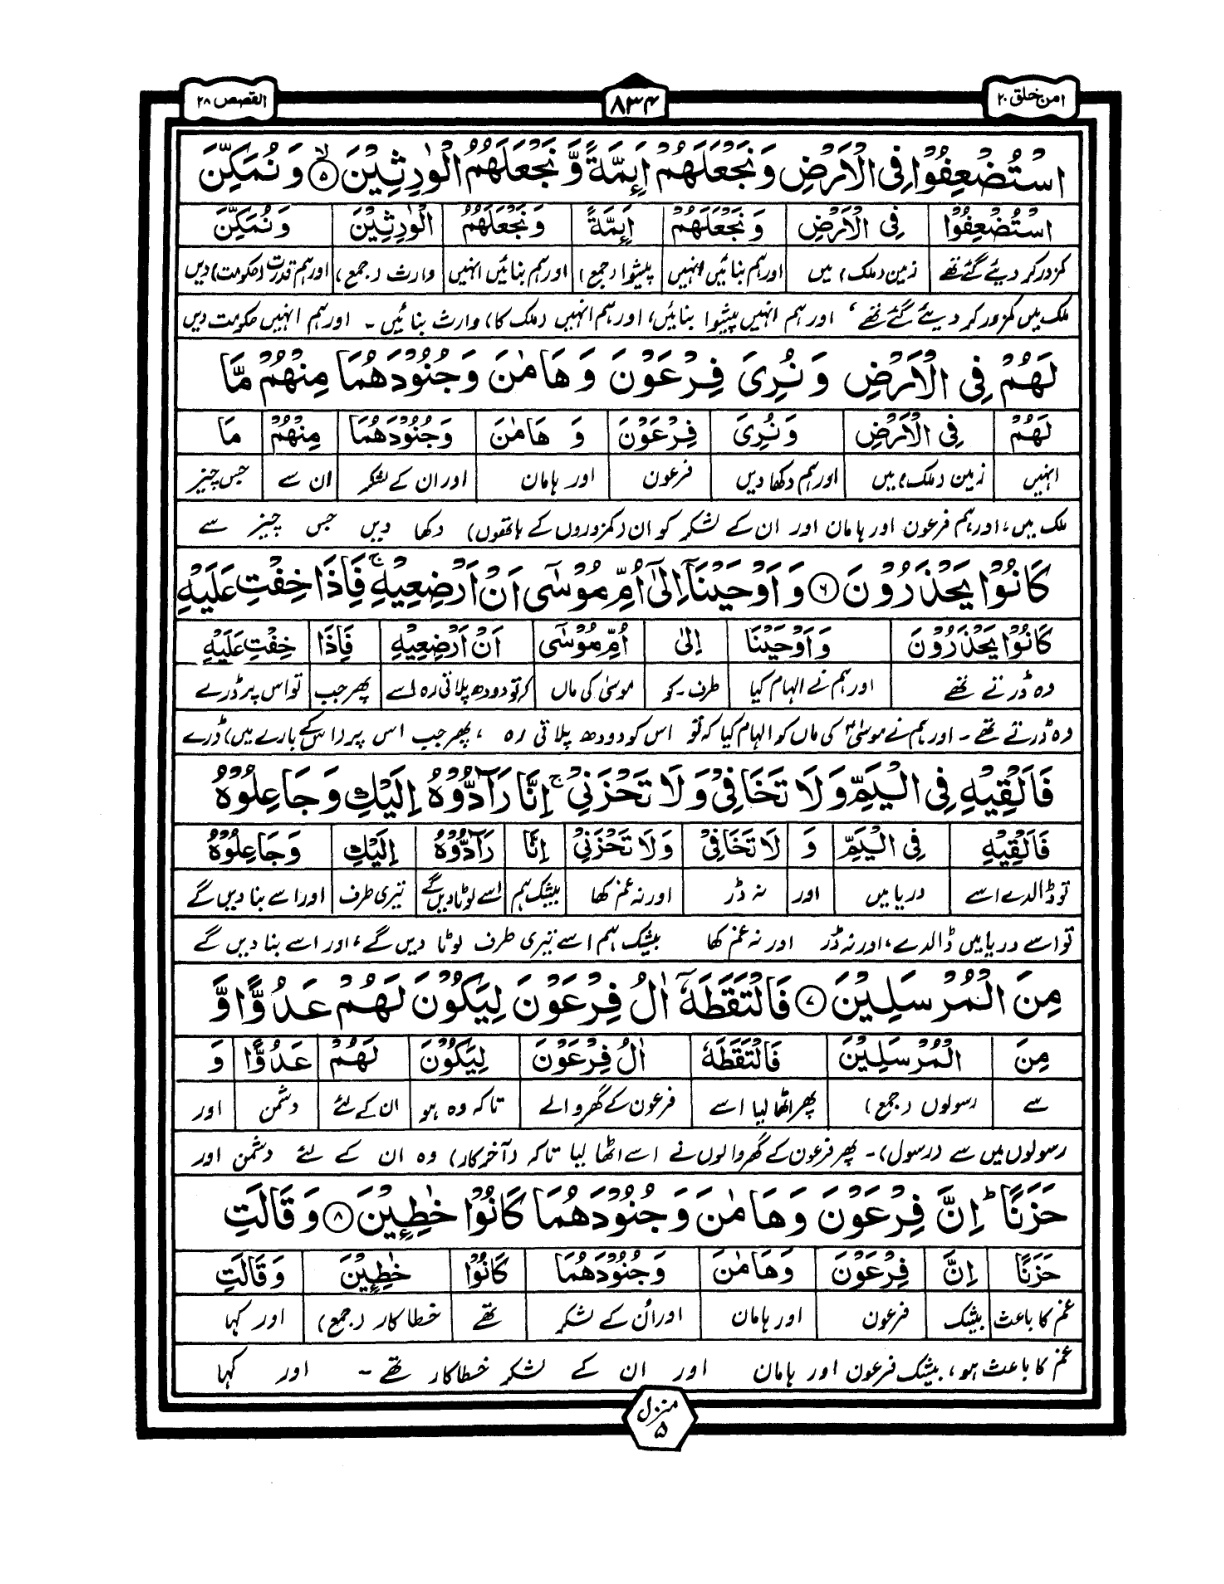 امن خلق ۲۰
۸۳۴
القصص ۲۸
اسْتُضْعِفُوْا فِی الْاَرْضِ وَ نَجْعَلَهُمْ اَئِمَّةً وَّ نَجْعَلَهُمُ الْوٰرِثِیْنَ ۵ۙ وَ نُمَكِّنَ
اسْتُضْعِفُوْا | فِی الْاَرْضِ | وَ نَجْعَلَهُمْ | اَئِمَّةً | وَ نَجْعَلَهُمُ | الْوٰرِثِیْنَ | وَ نُمَكِّنَ
کمزور کر دیئے گئے تھے | زمین (ملک) میں | اور ہم بنائیں انہیں | پیشوا (جمع) | اور ہم بنائیں انہیں | وارث (جمع) | اور ہم قدرت (حکومت) دیں
ملک میں کمزور کر دیئے گئے تھے، اور ہم انہیں پیشوا بنائیں، اور ہم انہیں (ملک کا) وارث بنائیں ۔ اور ہم انہیں حکومت دیں
لَهُمْ فِی الْاَرْضِ وَ نُرِیَ فِرْعَوْنَ وَ هَامٰنَ وَ جُنُوْدَهُمَا مِنْهُمْ مَّا
لَهُمْ | فِی الْاَرْضِ | وَ نُرِیَ | فِرْعَوْنَ | وَ هَامٰنَ | وَ جُنُوْدَهُمَا | مِنْهُمْ | مَا
انہیں | زمین (ملک) میں | اور ہم دکھا دیں | فرعون | اور ہامان | اور ان کے لشکر | ان سے | جس چیز
ملک میں، اور ہم فرعون اور ہامان اور ان کے لشکر کو ان (کمزوروں کے ہاتھوں) دکھا دیں جس چیز سے
كَانُوْا یَحْذَرُوْنَ ۶ وَ اَوْحَیْنَاۤ اِلٰۤی اُمِّ مُوْسٰۤی اَنْ اَرْضِعِیْهِ ۚ فَاِذَا خِفْتِ عَلَیْهِ
كَانُوْا یَحْذَرُوْنَ | وَ اَوْحَیْنَا | اِلٰی | اُمِّ مُوْسٰۤی | اَنْ اَرْضِعِیْهِ | فَاِذَا | خِفْتِ عَلَیْهِ
وہ ڈرتے تھے | اور ہم نے الہام کیا | طرف۔ کو | موسیٰ کی ماں | کہ تو دودھ پلاتی رہ اسے | پھر جب | تو اس پر ڈرے
وہ ڈرتے تھے ۔ اور ہم نے موسیٰؑ کی ماں کو الہام کیا کہ تو اس کو دودھ پلاتی رہ ، پھر جب اس پر (اس کے بارے میں) ڈرے
فَاَلْقِیْهِ فِی الْیَمِّ وَ لَا تَخَافِیْ وَ لَا تَحْزَنِیْ ۚ اِنَّا رَآدُّوْهُ اِلَیْكِ وَ جَاعِلُوْهُ
فَاَلْقِیْهِ | فِی الْیَمِّ | وَ | لَا تَخَافِیْ | وَ لَا تَحْزَنِیْ | اِنَّا | رَآدُّوْهُ | اِلَیْكِ | وَ جَاعِلُوْهُ
تو ڈالدے اسے | دریا میں | اور | نہ ڈر | اور نہ غم کھا | بیشک ہم | اسے لوٹا دیں گے | تیری طرف | اور اسے بنا دیں گے
تو اسے دریا میں ڈالدے، اور نہ ڈر اور نہ غم کھا بیشک ہم اسے تیری طرف لوٹا دیں گے، اور اسے بنا دیں گے
مِنَ الْمُرْسَلِیْنَ ۷ فَالْتَقَطَهٗۤ اٰلُ فِرْعَوْنَ لِیَكُوْنَ لَهُمْ عَدُوًّا وَّ
مِنَ | الْمُرْسَلِیْنَ | فَالْتَقَطَهٗ | اٰلُ فِرْعَوْنَ | لِیَكُوْنَ | لَهُمْ | عَدُوًّا | وَ
سے | رسولوں (جمع) | پھر اٹھا لیا اسے | فرعون کے گھر والے | تاکہ وہ ہو | ان کے لئے | دشمن | اور
رسولوں میں سے (رسول)۔ پھر فرعون کے گھر والوں نے اسے اٹھا لیا تاکہ (آخر کار) وہ ان کے لئے دشمن اور
حَزَنًا ؕ اِنَّ فِرْعَوْنَ وَ هَامٰنَ وَ جُنُوْدَهُمَا كَانُوْا خٰطِـِٕیْنَ ۸ وَ قَالَتِ
حَزَنًا | اِنَّ | فِرْعَوْنَ | وَ هَامٰنَ | وَ جُنُوْدَهُمَا | كَانُوْا | خٰطِـِٕیْنَ | وَ قَالَتِ
غم کا باعث | بیشک | فرعون | اور ہامان | اور اُن کے لشکر | تھے | خطا کار (جمع) | اور کہا
غم کا باعث ہو، بیشک فرعون اور ہامان اور ان کے لشکر خطاکار تھے ۔ اور کہا
منزل ۵